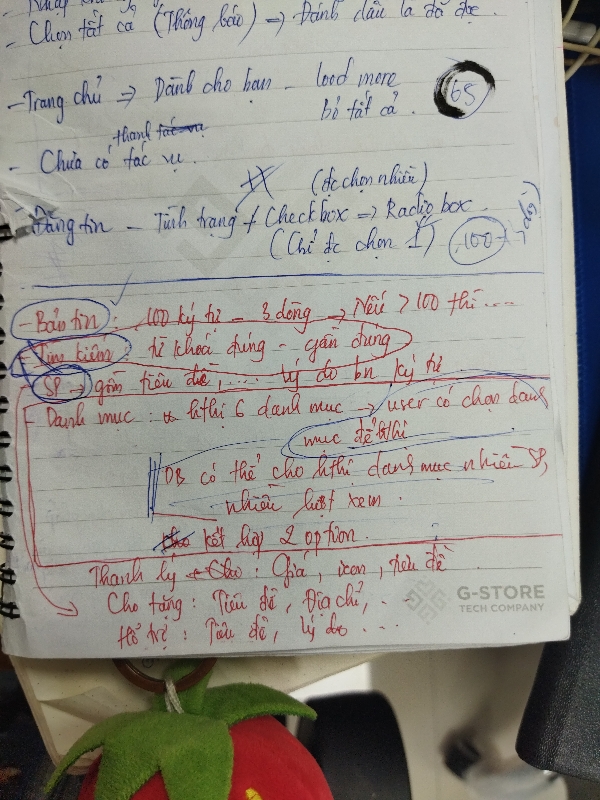 - Chọn tất cả (Thông báo) → Đánh dấu là đã đọc.
- Trang chủ → Dành cho bạn - load more
bỏ tất cả.
65
thanh tác vụ
- Chưa có tác vụ.
(đc chọn nhiều)
Đăng tin - Tình trạng + Checkbox → Radio box.
(Chỉ đc chọn 1)
100
- Bản tin: 100 ký tự - 3 dòng → Nếu > 100 thì ...
- Tìm kiếm: từ khoá đúng - gần đúng
- SP → gồm tiêu đề, ... lý do bn ký tự
- Danh mục: hthị 6 danh mục → user có chọn danh
mục để hthị
DB có thể cho hthị danh mục nhiều SP,
nhiều lượt xem.
kết hợp 2 option.
Thanh lý : Giá, xem, tiêu đề
Cho tặng: Tiêu đề, Địa chỉ, ...
Hỗ trợ: Tiêu đề, lý do ...
G-STORE
TECH COMPANY